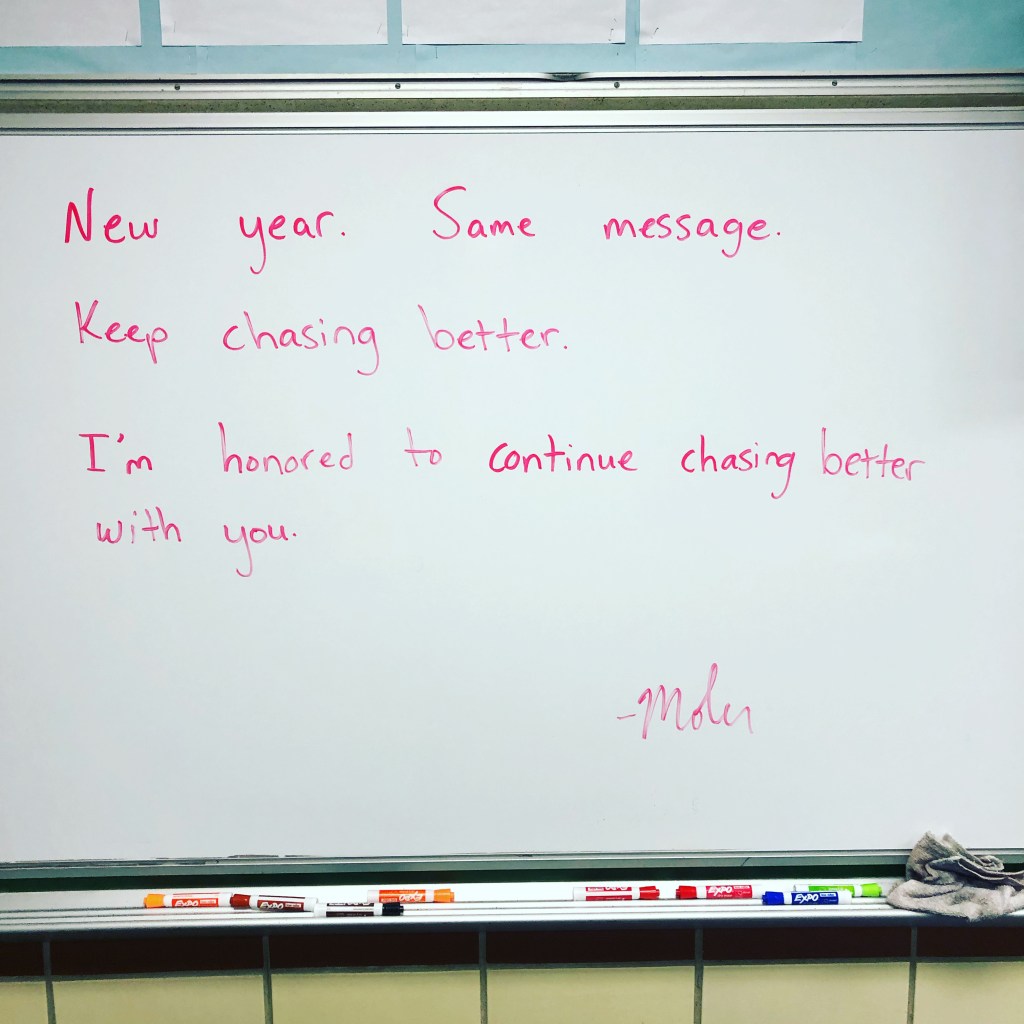 New year. Same message.
Keep chasing better.
I'm honored to continue chasing better
with you.
-Moler
EXPO
EXPO
EXPO
EXPO
EXPO